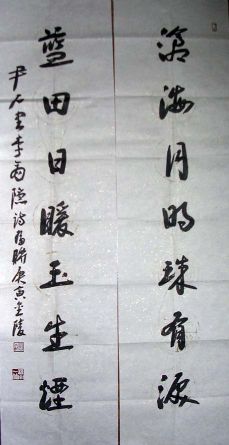 滄海月明珠有淚
藍田日暖玉生煙
尹人書李商隱詩句聯庚寅金陵